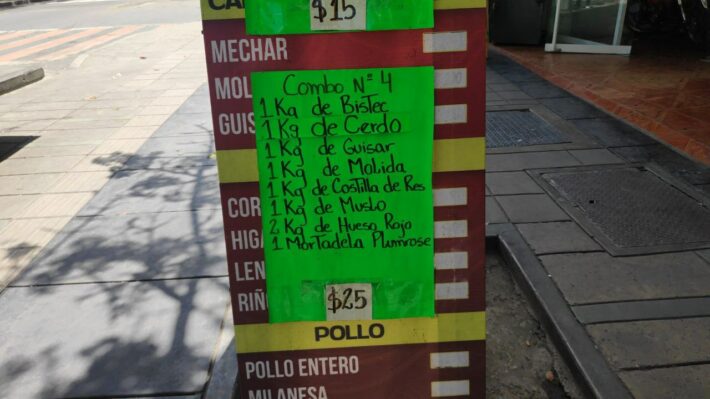 $15
MECHAR
Combo Nº 4
1 Kg de Bistec
1 Kg de Cerdo
1 Kg de Guisar
1 Kg de Molida
1 Kg de Costilla de Res
1 Kg de Muslo
2 Kg de Hueso Rojo
1 Mortadela Plumrose
$25
POLLO
POLLO ENTERO
MILANESA